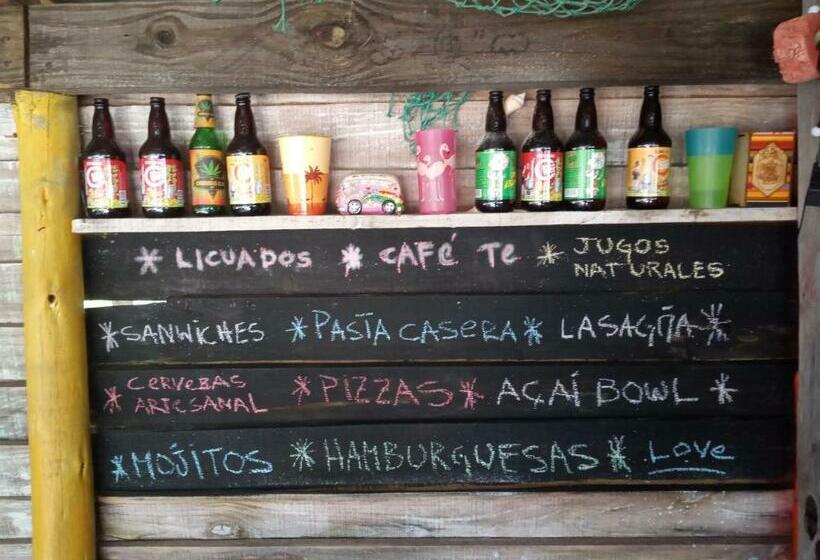 * LICUADOS * CAFÉ TE * JUGOS NATURALES
* SANWICHES * PASTA CASERA * LASAGÑA *
* CERVEBAS ARTESANAL * PIZZAS * AÇAÍ BOWL *
* MOJITOS * HAMBURGUESAS * LOVE